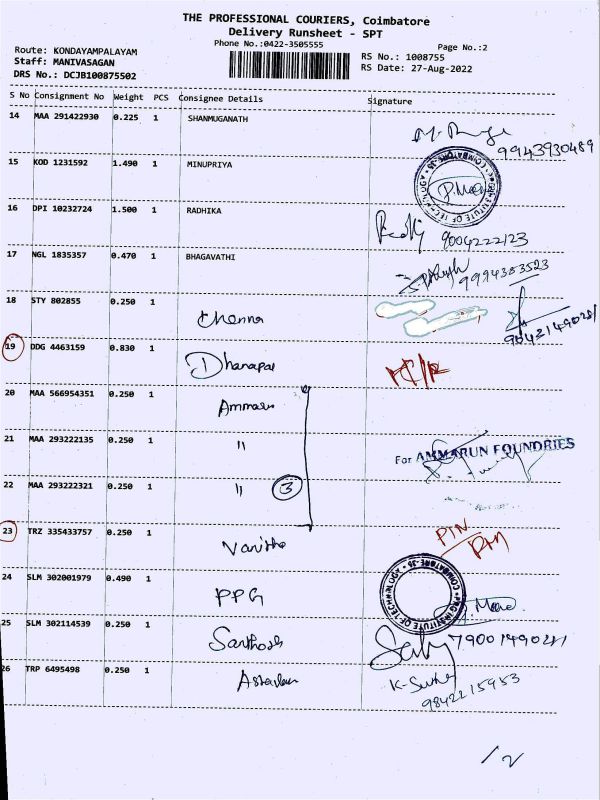 THE PROFESSIONAL COURIERS, Coimbatore
Delivery Runsheet - SPT
Phone No.:0422-3505555
Page No.:2
Route: KONDAYAMPALAYAM
Staff: MANIVASAGAN
DRS No.: DCJB100875502
RS No.: 1008755
RS Date: 27-Aug-2022
S No Consignment No Weight PCS Consignee Details Signature
14 MAA 291422930 0.225 1 SHANMUGANATH
9943930489
15 KOD 1231592 1.490 1 MINUPRIYA
16 DPI 10232724 1.500 1 RADHIKA
9004222123
17 NGL 1835357 0.470 1 BHAGAVATHI
9994353523
18 STY 802855 0.250 1 Chenna
19 DDG 4463159 0.830 1 Dhanapal
20 MAA 566954351 0.250 1 Ammarun
21 MAA 293222135 0.250 1 "
For AMMARUN FOUNDRIES
22 MAA 293222321 0.250 1 " 3
23 TRZ 335433757 0.250 1 Vanitha
24 SLM 302001979 0.490 1 PPG
25 SLM 302114539 0.250 1 Santhosh
26 TRP 6495498 0.250 1
9842215953
/2